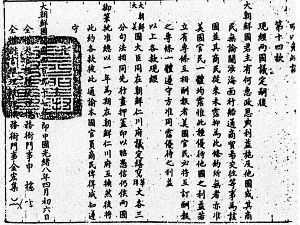 第十四款
現經兩國議定嗣後
大朝鮮國君主有何惠政恩典利益施及他國或其商
民無論關涉海面行船通商貿易交往等事為該
國並其商民從來未霑抑為此條約所無者亦准
美國官民一體均霑惟此種優待他國之利益若
立有專條互相酬報者美國官民必將互訂酬報
之專條一體遵守方准同霑優待之利益
以上各款現經
大朝鮮美國大臣同在朝鮮仁川府議定繕寫華洋文各三
分句法相同先行畫押蓋印以昭憑信仍俟兩國
御筆批准總以一年為期在朝鮮仁川府互換然後將
此約各款彼此通諭本國官員商民俾得咸知遵
守
大朝鮮國開國 即中國光緒八年四月初六日
全權 務衙門事申櫶
全權 務衙門事金宏集